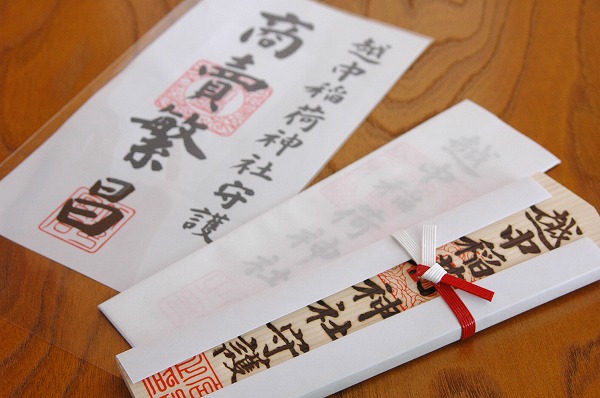 越中稲荷神社守護
商賣繁昌
越中稲荷神社
越中稲荷神社守護